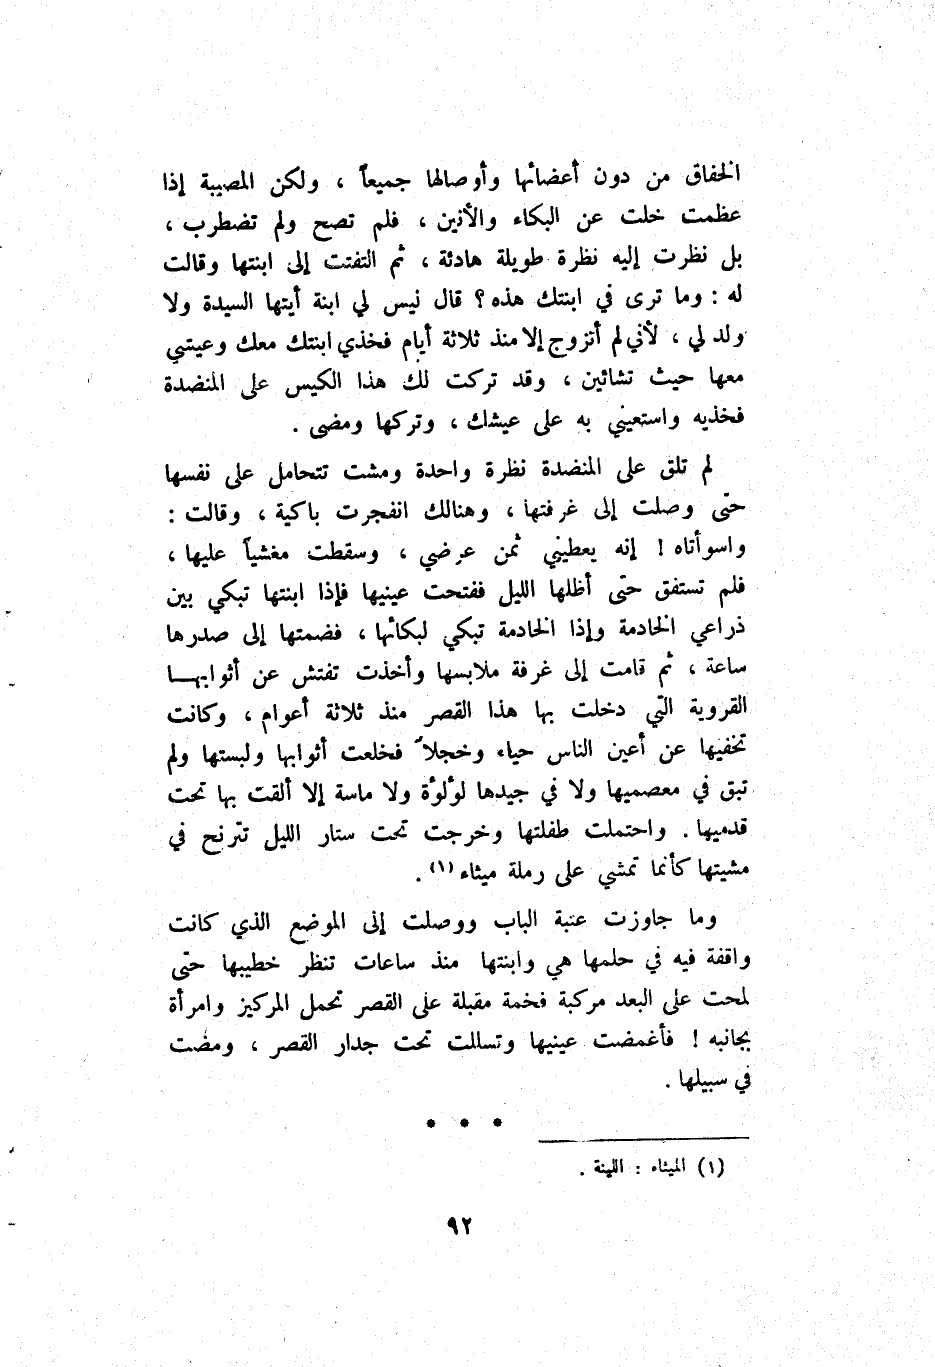 الخفاق من دون أعضائها وأوصالها جميعاً ، ولكن المصيبة إذا
عظمت خلت عن البكاء والأنين ، فلم تصح ولم تضطرب ،
بل نظرت إليه نظرة طويلة هادئة ، ثم التفتت إلى ابنتها وقالت
له : وما ترى في ابنتك هذه ؟ قال ليس لي ابنة أيتها السيدة ولا
ولد لي ، لأني لم أتزوج إلا منذ ثلاثة أيام فخذي ابنتك معك وعيشي
معها حيث تشائين ، وقد تركت لك هذا الكيس على المنضدة
فخذيه واستعيني به على عيشك ، وتركها ومضى .
لم تلق على المنضدة نظرة واحدة ومشت تتحامل على نفسها
حتى وصلت إلى غرفتها ، وهنالك انفجرت باكية ، وقالت :
واسوأتاه ! إنه يعطيني ثمن عرضي ، وسقطت مغشياً عليها ،
فلم تستفق حتى أظلها الليل ففتحت عينيها فإذا ابنتها تبكي بين
ذراعي الخادمة وإذا الخادمة تبكي لبكائها ، فضمتها إلى صدرها
ساعة ، ثم قامت إلى غرفة ملابسها وأخذت تفتش عن أثوابهـــا
القروية التي دخلت بها هذا القصر منذ ثلاثة أعوام ، وكانت
تخفيها عن أعين الناس حياء وخجلاً فخلعت أثوابها ولبستها ولم
تبق في معصميها ولا في جيدها لؤلؤة ولا ماسة إلا ألقت بها تحت
قدميها . واحتملت طفلتها وخرجت تحت ستار الليل تترنح في
مشيتها كأنما تمشي على رملة ميثاء (١) .
وما جاوزت عتبة الباب ووصلت إلى الموضع الذي كانت
واقفة فيه في حلمها هي وابنتها منذ ساعات تنظر خطيبها حتى
لمحت على البعد مركبة فخمة مقبلة على القصر تحمل المركيز وامرأة
بجانبه ! فأغمضت عينيها وتسللت تحت جدار القصر ، ومضت
في سبيلها .
* * *
(١) الميثاء : اللينة .
٩٢